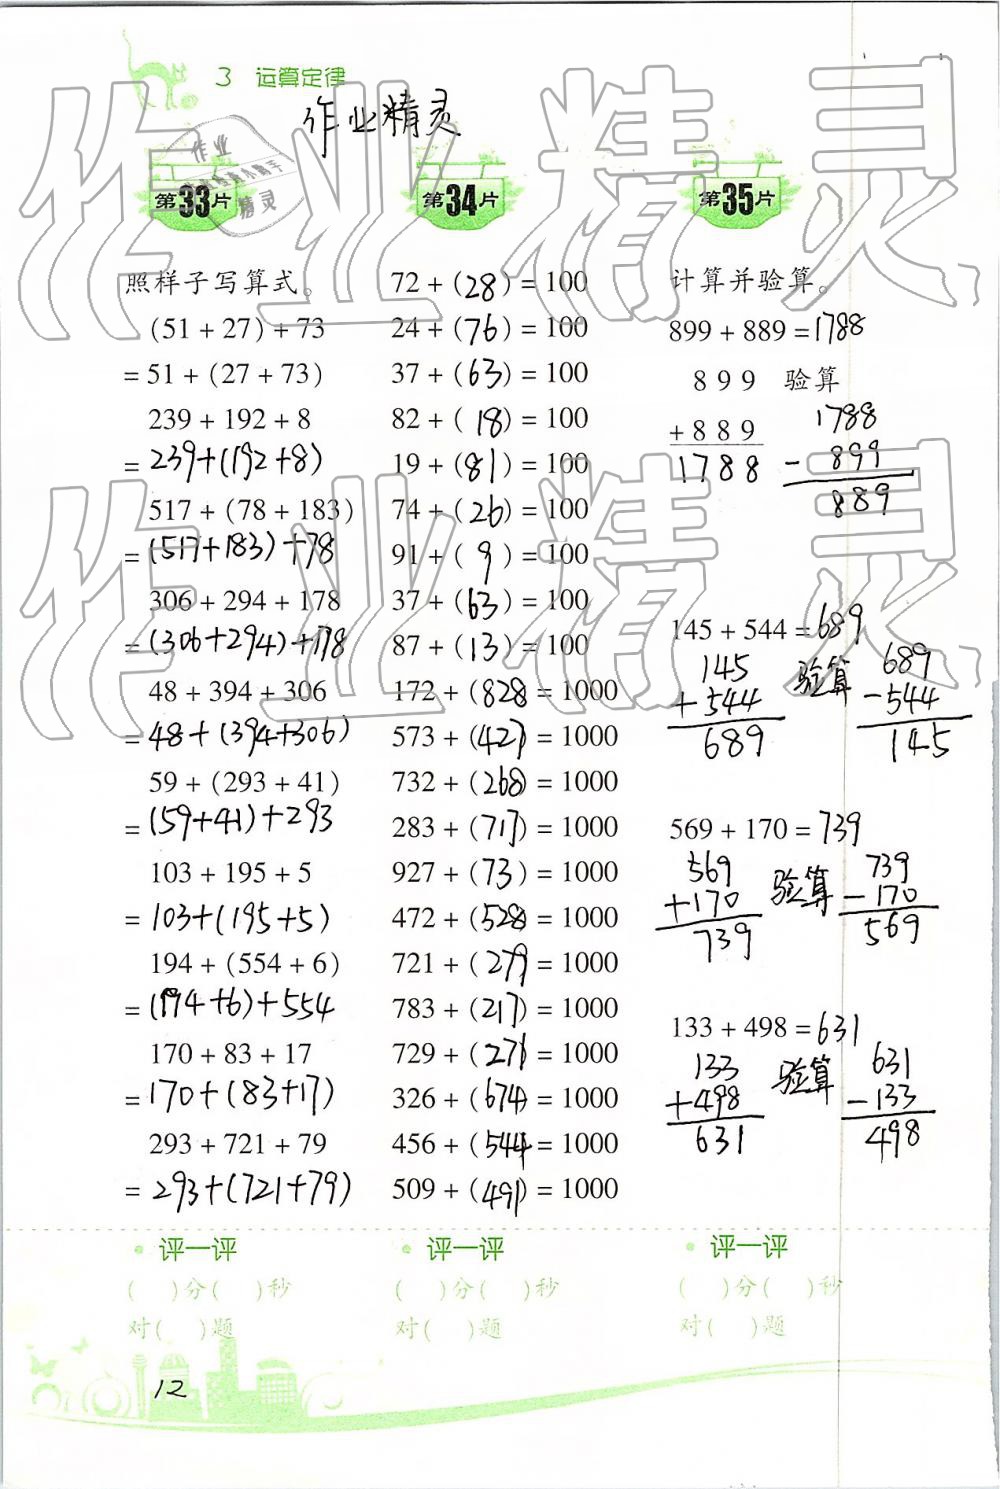 3 运算定律
作业精灵
第33片
照样子写算式。
(51+27)+73
=51+(27+73)
239+192+8
=239+(192+8)
517+(78+183)
=(517+183)+78
306+294+178
=(306+294)+178
48+394+306
=48+(394+306)
59+(293+41)
=(59+41)+293
103+195+5
=103+(195+5)
194+(554+6)
=(194+6)+554
170+83+17
=170+(83+17)
293+721+79
=293+(721+79)
评一评
( )分( )秒
对( )题
第34片
72+(28)=100
24+(76)=100
37+(63)=100
82+(18)=100
19+(81)=100
74+(26)=100
91+(9)=100
37+(63)=100
87+(13)=100
172+(828)=1000
573+(427)=1000
732+(268)=1000
283+(717)=1000
927+(73)=1000
472+(528)=1000
721+(279)=1000
783+(217)=1000
729+(271)=1000
326+(674)=1000
456+(544)=1000
509+(491)=1000
评一评
( )分( )秒
对( )题
第35片
计算并验算。
899+889=1788
899 验算
+889
1788
1788
-899
889
145+544=689
145
+544
689
验算
689
-544
145
569+170=739
569
+170
739
验算
739
-170
569
133+498=631
133
+498
631
验算
631
-133
498
评一评
( )分( )秒
对( )题
12
作业精灵